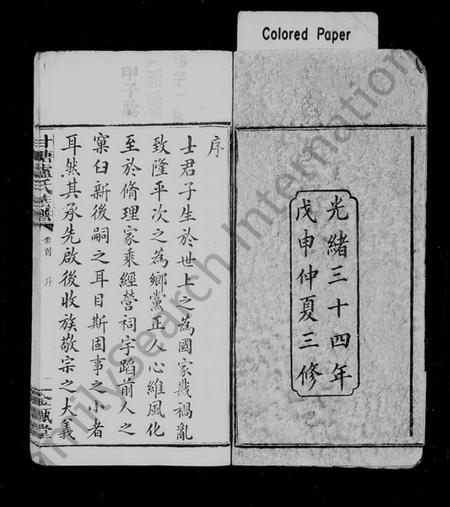 Colored Paper
光緒三十四年
戊申仲夏三修
序
士君子生於世上之為國家戡禍亂
致隆平次之為鄉黨正人心維風化
至於脩理家乘經營祠宇蹈前人之
窠臼新後嗣之耳目斯固事之小者
耳然其承先啟後收族敬宗之大義
甘塘盧氏族譜
卷首
序
FamilySearch International